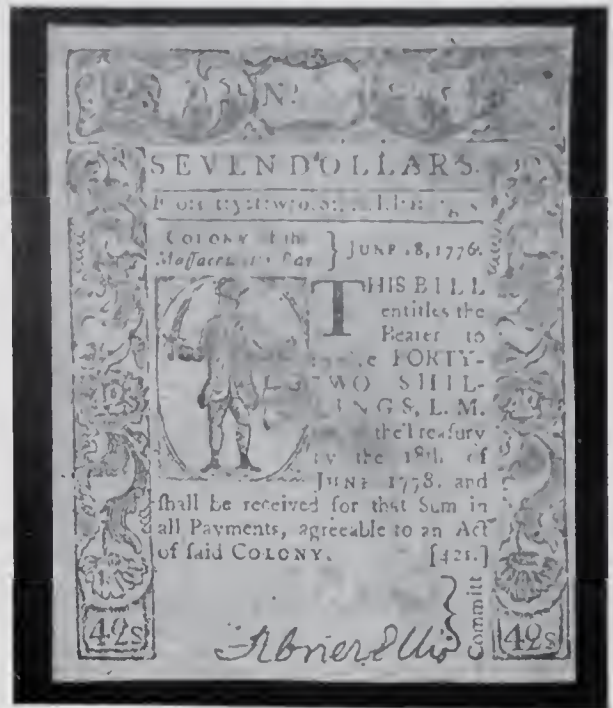 No
SEVEN DOLLARS.
COLONY of the
Massachusetts Bay } JUNE 18, 1776.
THIS BILL
entitles the
Bearer to
FORTY-
TWO SHIL-
INGS, L. M.
the Treasury
by the 18th. of
JUNE 1778. and
shall be received for that Sum in
all Payments, agreeable to an Act
of said COLONY. [42s.]
Committ
42s 42s